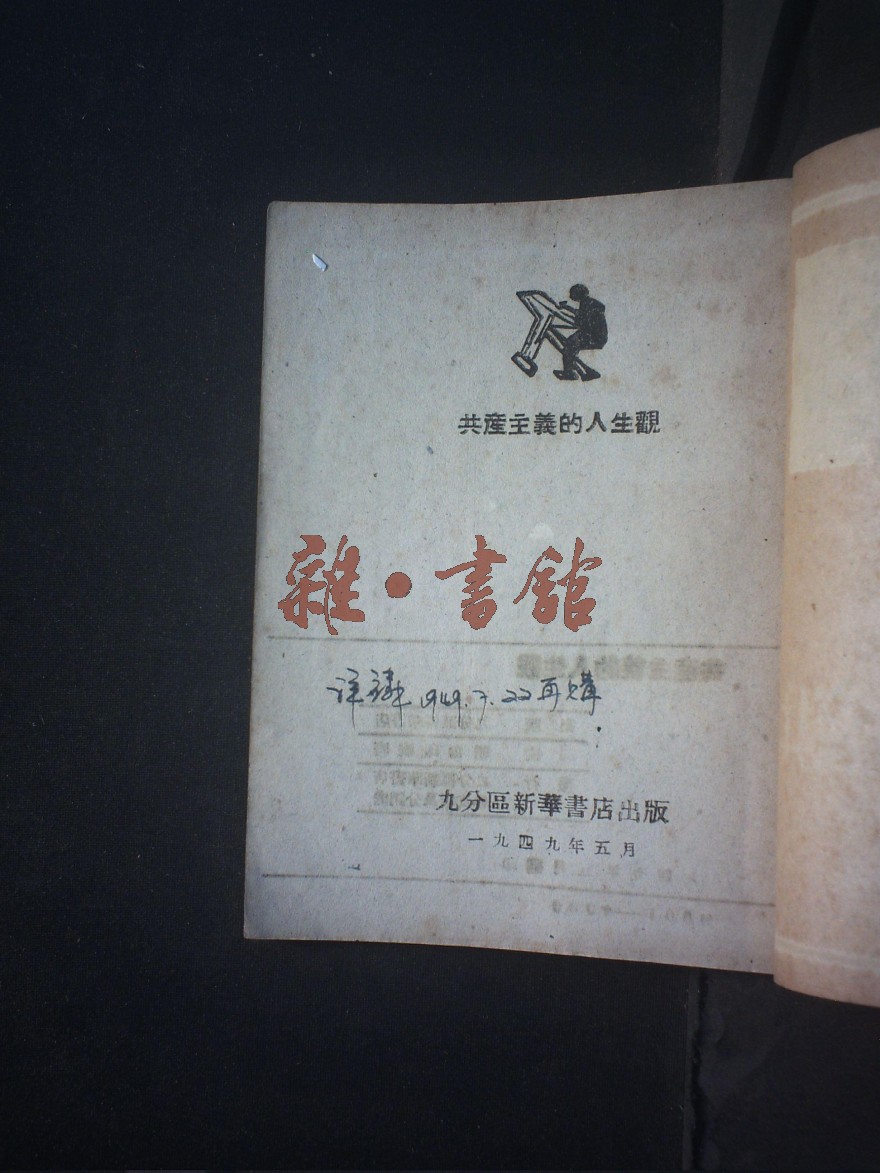 共產主義的人生觀
雜•書館
1949.7.22再購
九分區新華書店出版
一九四九年五月